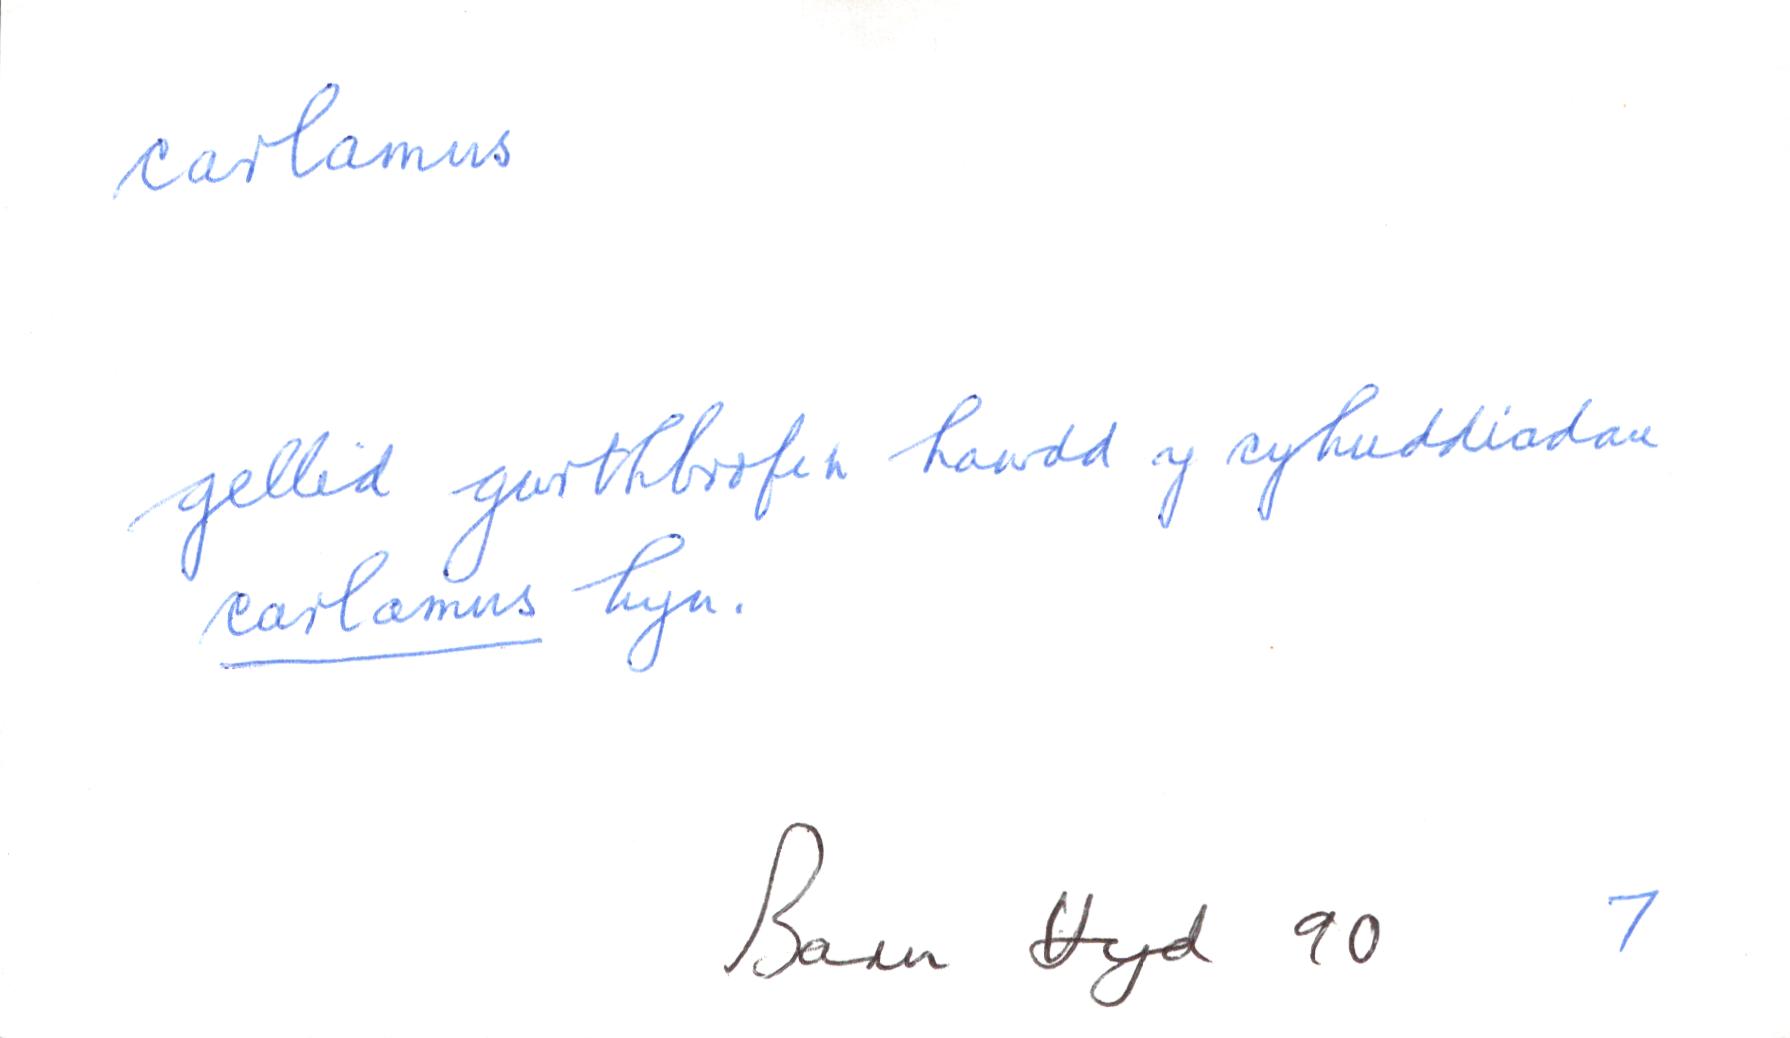 carlamus
gellid gwrthbrofi'n hawdd y cyhuddiadau
carlamus hyn.
Barn Hyd 90 7